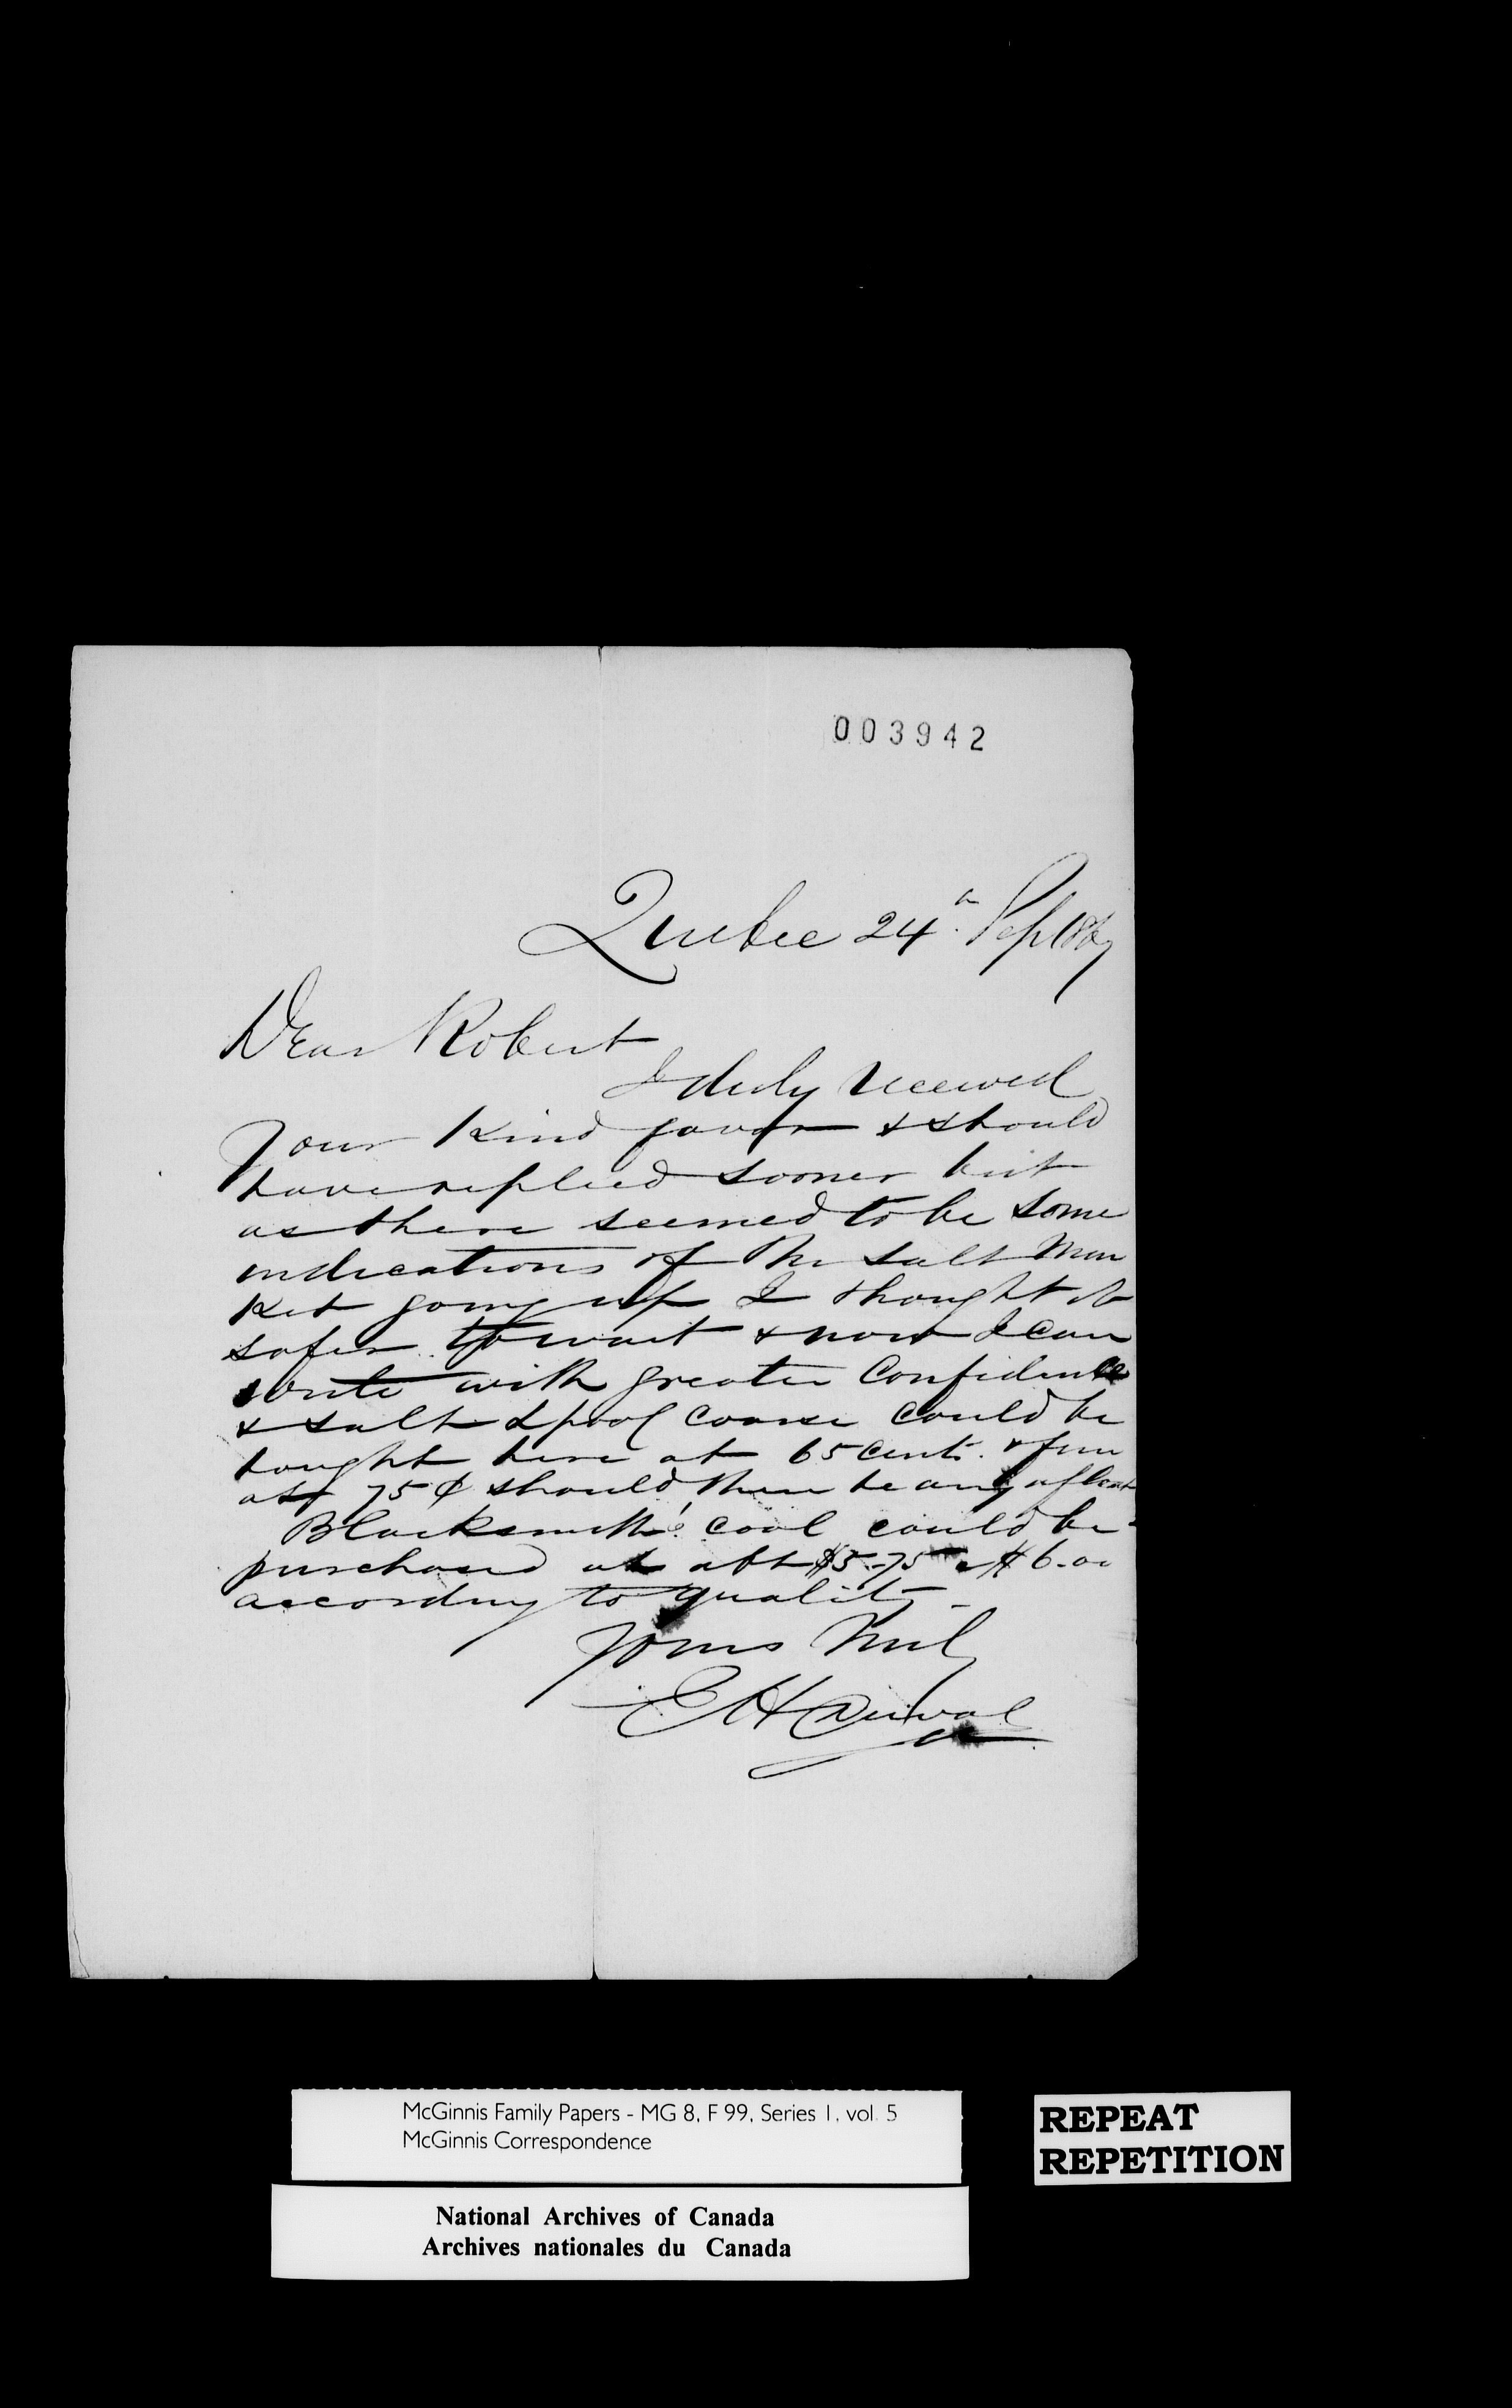 003942
Quebec 24th Sept 186
Dear Robert
I duly received
your kind favor & should
have replied sooner but
as there seemed to be some
indications of the salt mar
ket going up I thought it
safer to wait & now I can
write with greater Confidence
& salt Lpool Coarse could be
bought here at 65 cents. & fine
at 75 ¢ should there be any afloat
Blacksmith's Coal could be
purchased at abt $5.75 a $6.00
according to quality -
Yours truly
E H
McGinnis Family Papers - MG 8, F 99, Series 1, vol. 5
McGinnis Correspondence
National Archives of Canada
Archives nationales du Canada
REPEAT
REPETITION